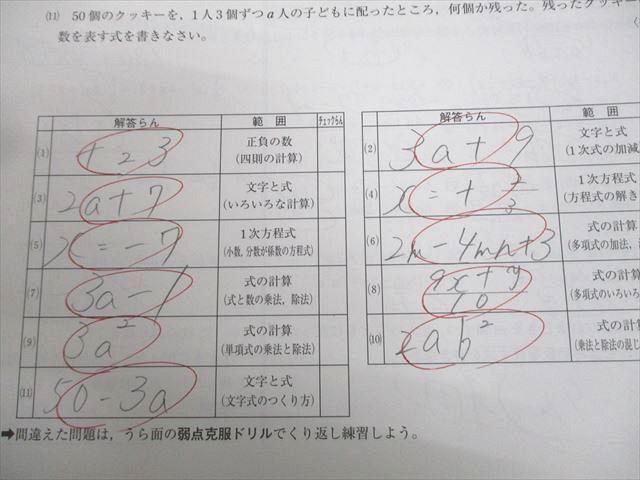 (11) 50個のクッキーを，1人3個ずつa人の子どもに配ったところ，何個か残った。残ったクッキー
数を表す式を書きなさい。
解答らん 範囲 チェックらん
(1) +23 正負の数
(四則の計算)
(3) 2a+7 文字と式
(いろいろな計算)
(5) x=-7 1次方程式
(小数，分数が係数の方程式)
(7) 3a-1 式の計算
(式と数の乗法，除法)
(9) 3a² 式の計算
(単項式の乗法と除法)
(11) 50-3a 文字と式
(文字式のつくり方)
解答らん 範囲
(2) 3a+9 文字と式
(1次式の加減
(4) x=+ 1次方程式
(方程式の解き
(6) 2m-4mn+3 式の計算
(多項式の加法，
(8) 9x+y 式の計算
10 (多項式のいろいろ
(10) 2ab² 式の計
(乗法と除法の混じ
➡間違えた問題は，うら面の弱点克服ドリルでくり返し練習しよう。